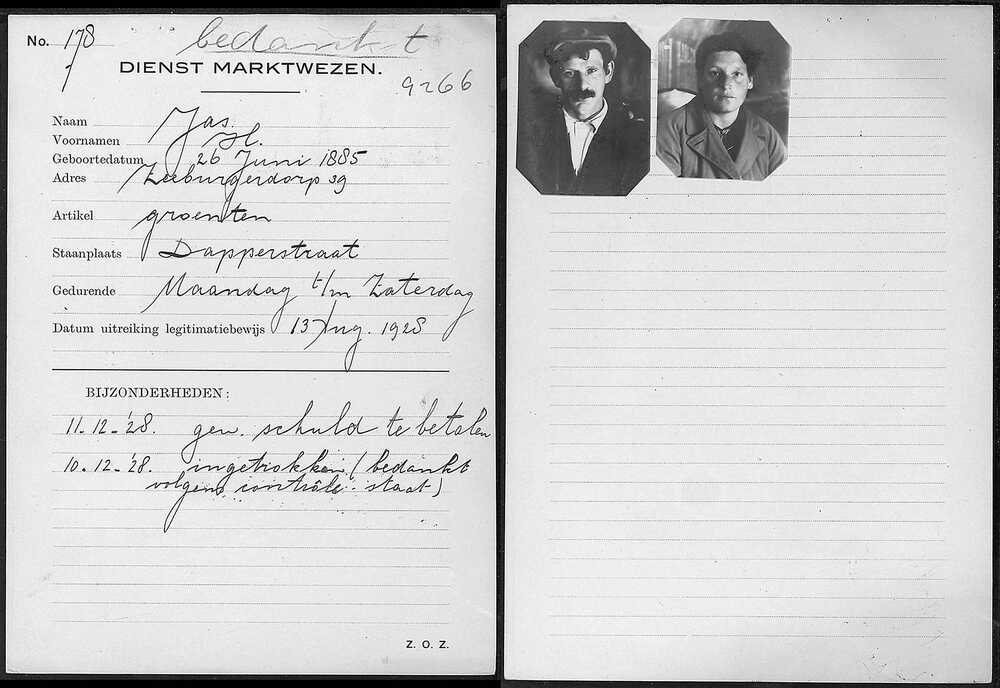 No. 178 bedankt
DIENST MARKTWEZEN.
9266
Naam Jas.
Voornamen H.
Geboortedatum 26 Juni 1885
Adres Zeeburgerdorp 39
Artikel groenten
Staanplaats Dapperstraat
Gedurende Maandag t/m Zaterdag
Datum uitreiking legitimatiebewijs 13 Aug. 1928
BIJZONDERHEDEN:
11-12-'28. gew. schuld te betalen
10-12-'28. ingetrokken (bedankt
volgens contrôle-staat)
Z. O. Z.